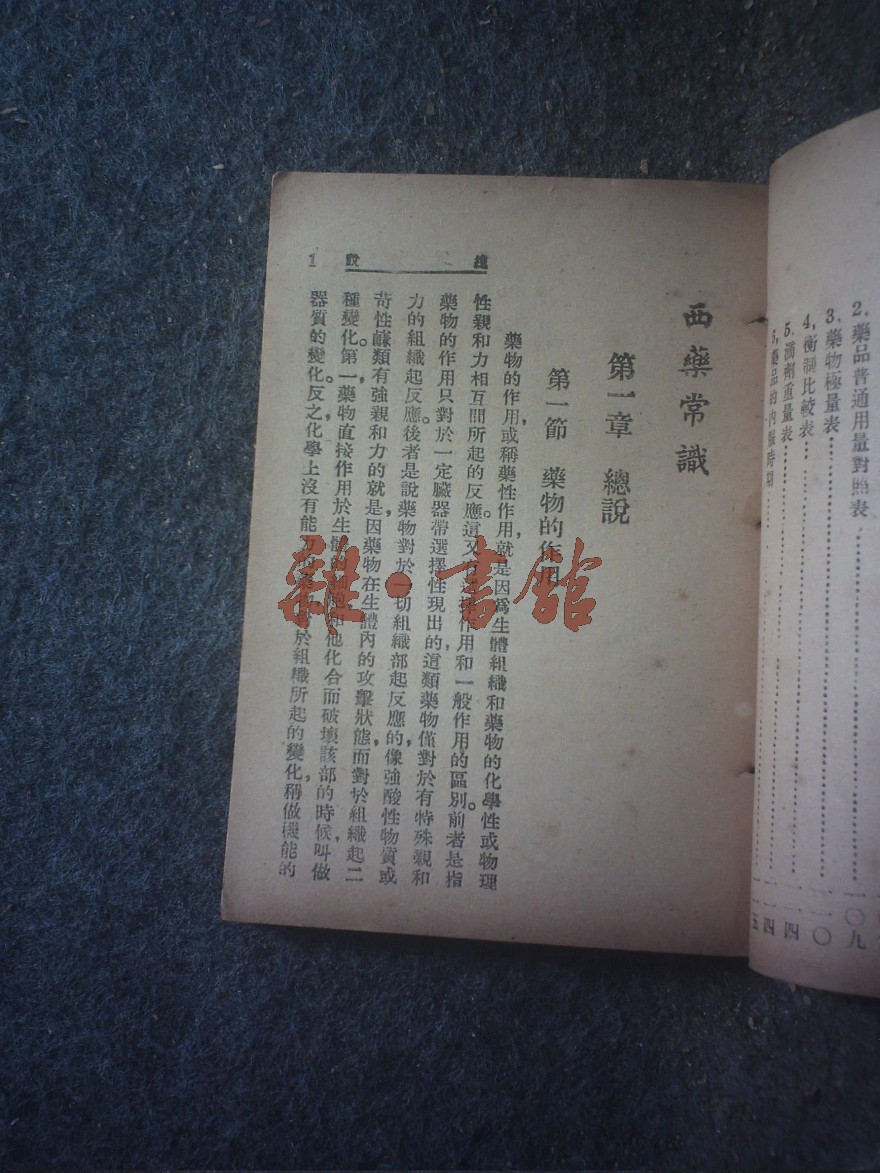 2、藥品普通用量對照表 一〇九
3、藥物極量表 一一〇
4、衡制比較表 一一四
5、滴劑重量表 一一四
藥品的內服時期 一一五
西藥常識
第一章 總說
第一節 藥物的作用
藥物的作用，或稱藥性作用，就是因爲生體組織和藥物的化學性或物理
性親和力相互間所起的反應。這又有選擇作用和一般作用的區別。前者是指
藥物的作用只對於一定臟器帶選擇性現出的，這類藥物僅對於有特殊親和
力的組織起反應。後者是說藥物對於一切組織部起反應的，像強酸性物質或
苛性鹼類有強親和力的就是，因藥物在生體內的攻擊狀態，而對於組織起二
種變化。第一，藥物直接作用於生體的細胞，和他化合而破壞該部的時候，叫做
器質的變化。反之，化學上沒有能力的藥物對於組織所起的變化，稱做機能的
總說 1
雜·書館